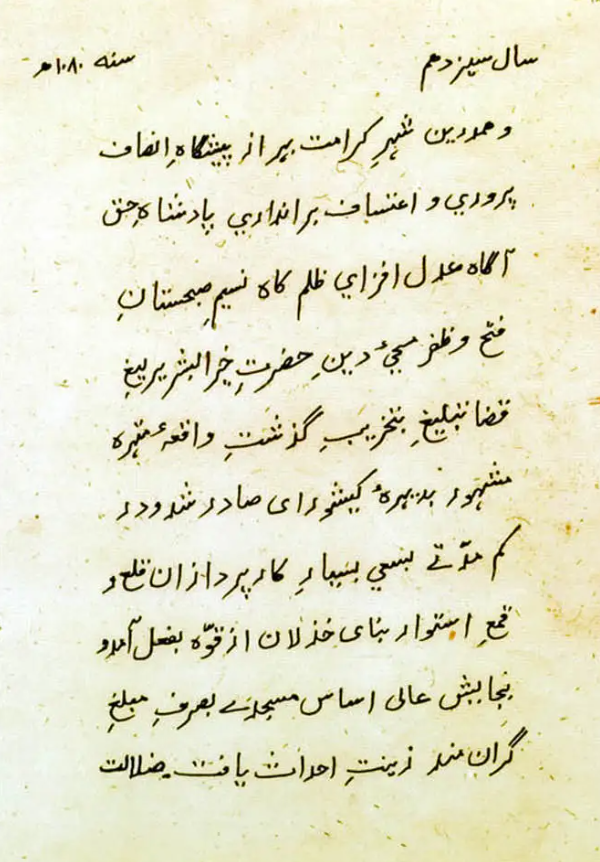 سال سیزدهم سنه ۱۰۸۰ھ
و همدرین شهرِ کرامت بهر از پیشگاهِ انصاف
پروري و اعتساف براندازي پادشاهِ حق
آگاه عدل افزاي ظلم کاه نسیمِ صبحستانِ
فتح و ظفر محيیٔ دینِ حضرتِ خیر البشر یرلیغِ
قضا تبلیغِ بتخریبِ گذشتِ واقعهٔ متهره
مشهور بدیهرهٔ کیشورای صادر شد و در
کم مدّتے بسعيِ بسیار کار پردازان قلع و
قمعِ استوار بنای خذلان از قوّه بفعل آمد و
بجایش عالی اساس مسجدے بصرفِ مبلغِ
گران مند زینتِ احداث یافت ضلالت